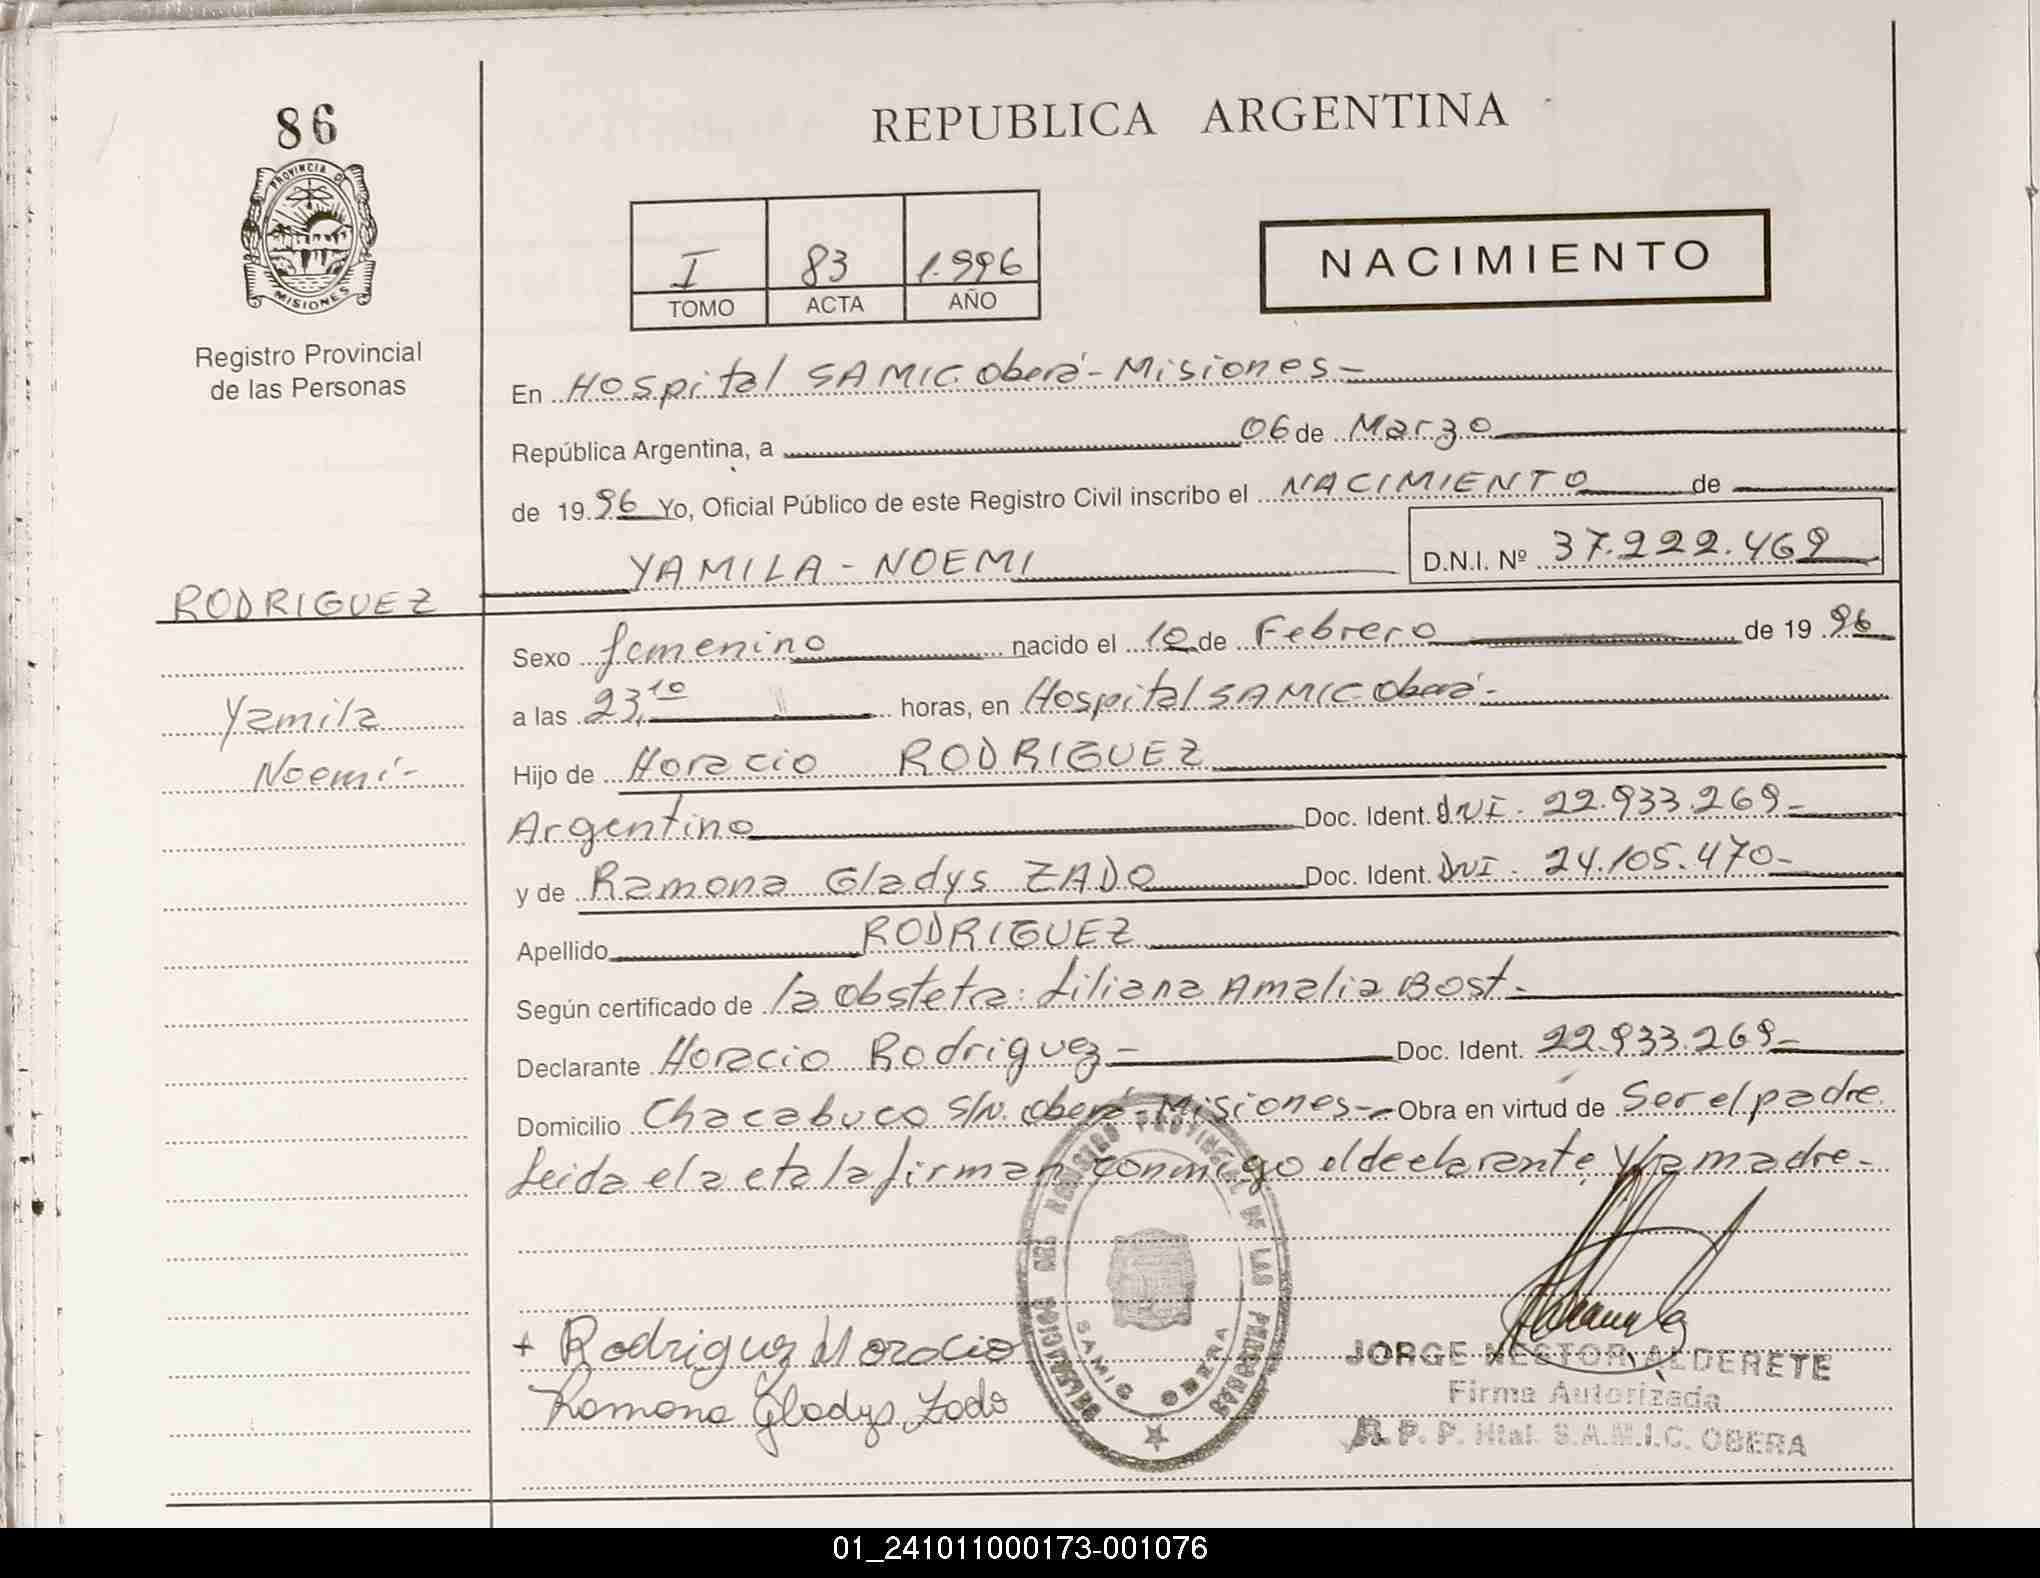 86
PROVINCIA DE
MISIONES
Registro Provincial
de las Personas
REPUBLICA ARGENTINA
I 83 1.996
TOMO ACTA AÑO
NACIMIENTO
En Hospital SAMIC Oberá - Misiones -
República Argentina, a 06 de Marzo
de 1996 Yo, Oficial Público de este Registro Civil inscribo el NACIMIENTO de
YAMILA - NOEMI D.N.I. Nº 37.222.469
RODRIGUEZ
Yamila
Noemí -
Sexo femenino nacido el 10 de Febrero de 1996
a las 23,10 horas, en Hospital SAMIC Oberá -
Hijo de Horacio RODRIGUEZ
Argentino Doc. Ident. DNI - 22.933.269 -
y de Ramona Gladys ZADO Doc. Ident. DNI - 24.105.470 -
Apellido RODRIGUEZ
Según certificado de la obstetra: Liliana Amalia Bost -
Declarante Horacio Rodriguez - Doc. Ident. 22.933.269 -
Domicilio Chacabuco S/N. Oberá - Misiones - Obra en virtud de Ser el padre.
Leida el acta la firman conmigo el declarante y la madre -
+ Rodriguez Horacio
Ramona Gladys Zado
DELEGACION DEL REGISTRO PROVINCIAL DE LAS PERSONAS
SAMIC OBERA
JORGE NESTOR ALDERETE
Firma Autorizada
R. P. P. Htal. S.A.M.I.C. OBERA
01_241011000173-001076